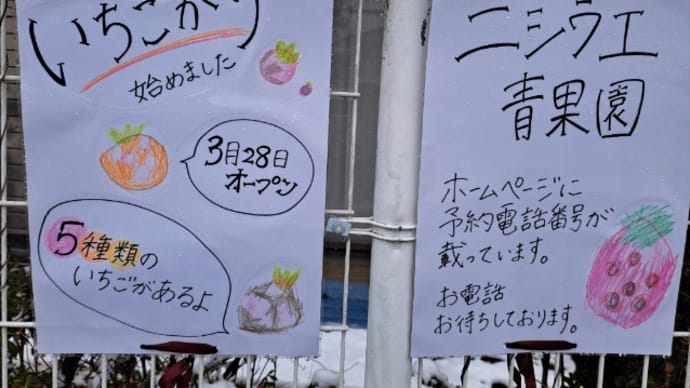 いちごがり
始めました
3月28日
オープン
5種類の
いちごがあるよ
ニシウエ
青果園
ホームページに
予約電話番号が
載っています。
お電話
お待ちしております。